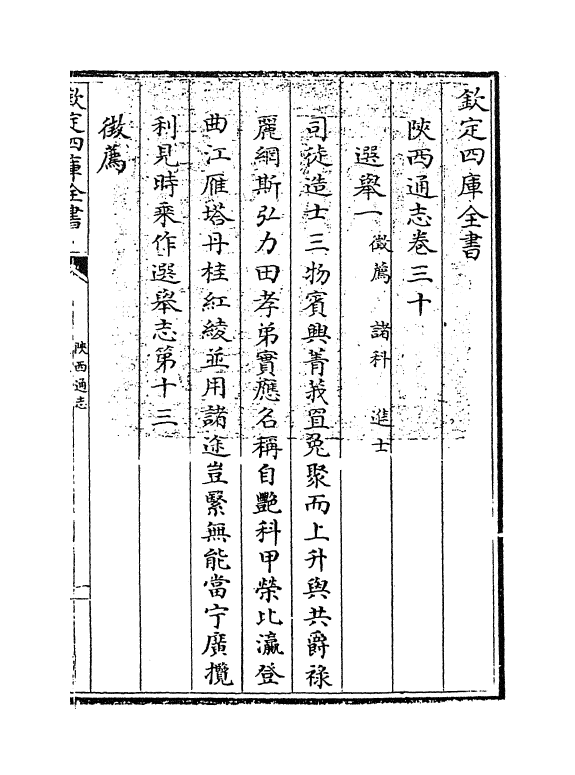 欽定四庫全書
陝西通志卷三十
選舉一 徵薦 諸科 進士
司徒造士三物賓興菁莪罝兔聚而上升與共爵祿
麗網斯弘力田孝弟實應名稱自艷科甲榮比瀛登
曲江雁塔丹桂紅綾並用諸途豈繄無能當宁廣攬
利見時乘作選舉志第十三
徵薦
欽定四庫全書
陜西通志
一